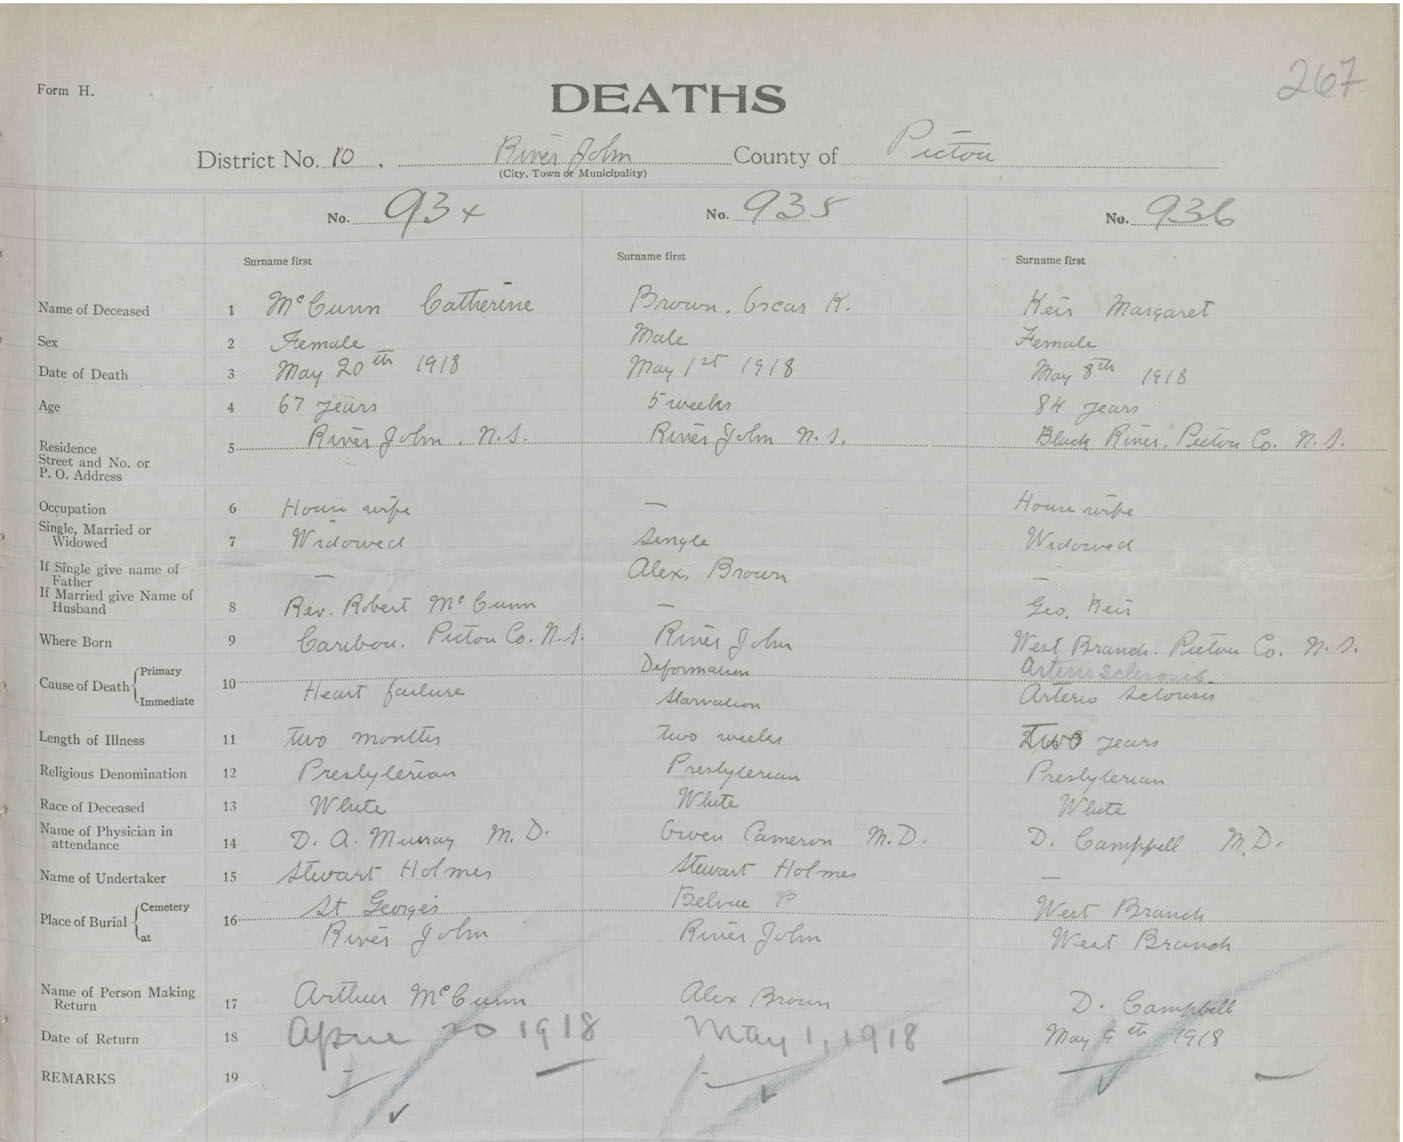 267
Form H.
DEATHS
District No. 10. River John County of Pictou
(City, Town or Municipality)
No. 934 No. 935 No. 936
Surname first Surname first Surname first
Name of Deceased 1 McCunn Catherine Brown, Oscar K. Keir Margaret
Sex 2 Female Male Female
Date of Death 3 May 20th 1918 May 1st 1918 May 8th 1918
Age 4 67 years 5 weeks 84 years
Residence
Street and No. or
P. O. Address 5 River John, N.S. River John N.S. Black River, Pictou Co. N.S.
Occupation 6 House wife — House wife
Single, Married or
Widowed 7 Widowed Single Widowed
If Single give name of
Father — Alex. Brown —
If Married give Name of
Husband 8 Rev. Robert McCunn — Geo. Keir
Where Born 9 Caribou, Pictou Co. N.S. River John West Branch. Pictou Co. N.S.
Cause of Death Primary Deformation Arterio Sclerosis
10
Immediate Heart failure Starvation Arterio Sclorisis
Length of Illness 11 two months two weeks Two years
Religious Denomination 12 Presbyterian Presbyterian Presbyterian
Race of Deceased 13 White White White
Name of Physician in
attendance 14 D. A. Murray M.D. Owen Cameron M.D. D. Camppell M.D.
Name of Undertaker 15 Stewart Holmes Stewart Holmes —
Place of Burial Cemetery 16 St George's Belvue P West Branch
at River John River John West Branch
Name of Person Making
Return 17 Arthur McCunn Alex Brown D. Campbell
Date of Return 18 20 1918 May 1, 1918 May 9th 1918
REMARKS 19 — — —